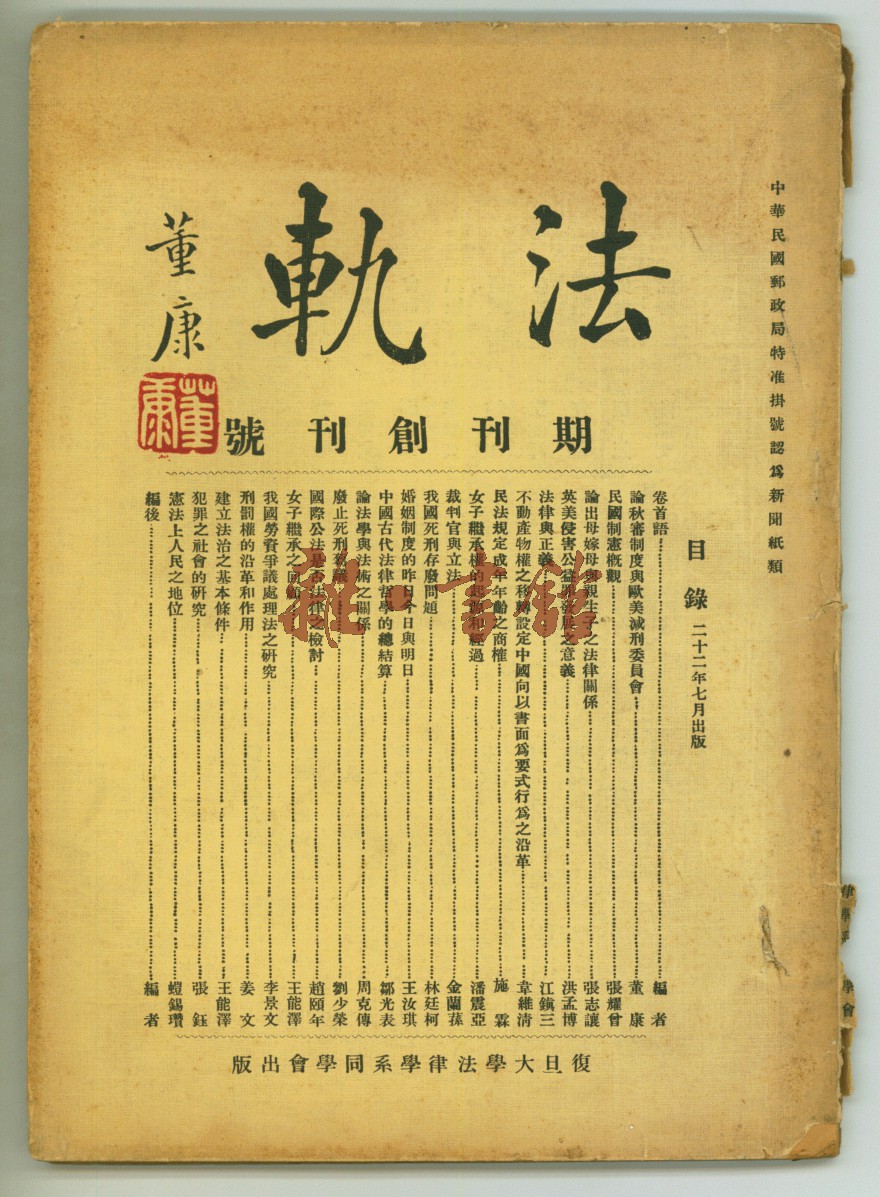 中華民國郵政局特准掛號認爲新聞紙類
法軌
董康
董康
期刊創刊號
目錄 二十二年七月出版
卷首語 編者
論秋審制度與歐美減刑委員會 董康
民國制憲概觀 張耀曾
論出母嫁母與親生子之法律關係 張志讓
英美侵害公益罪發展之意義 洪孟博
法律與正義 江鎮三
不動產物權之移轉設定中國向以書面爲要式行爲之沿革 韋維清
民法規定成年年齡之商榷 施霖
女子繼承權的起源和經過 潘震亞
裁判官與立法 金蘭蓀
我國死刑存廢問題 林廷柯
婚姻制度的昨日今日與明日 王汝琪
中國古代法律哲學的總結算 鄒光表
論法學與法術之關係 周克傳
廢止死刑芻議 劉少榮
國際公法是否法律之檢討 趙頤年
女子繼承之回顧 王能澤
我國勞資爭議處理法之研究 李景文
刑罰權的沿革和作用 姜文
建立法治之基本條件 王能澤
犯罪之社會的研究 張鈺
憲法上人民之地位 錫瓚
編後 編者
復旦大學法律學系同學會出版